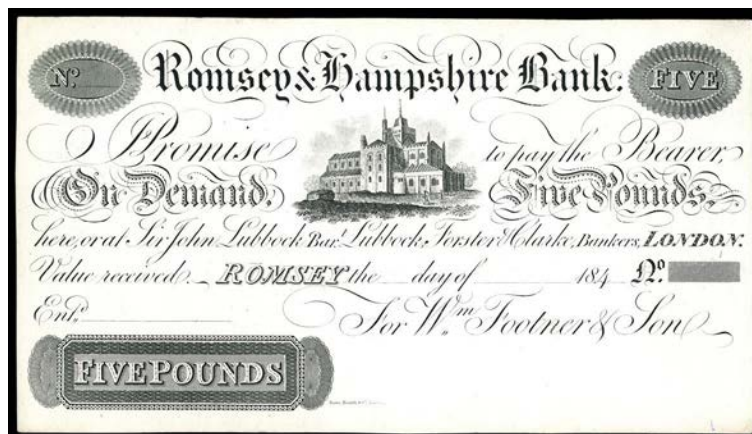 No. Romsey & Hampshire Bank. FIVE
I Promise to pay the Bearer,
On Demand, Five Pounds,
here, or at Sir John Lubbock Bart. Lubbock, Forster & Clarke, Bankers, LONDON.
Value received. ROMSEY the day of 184 No.
Entd.
For Wm. Footner & Son
FIVE POUNDS